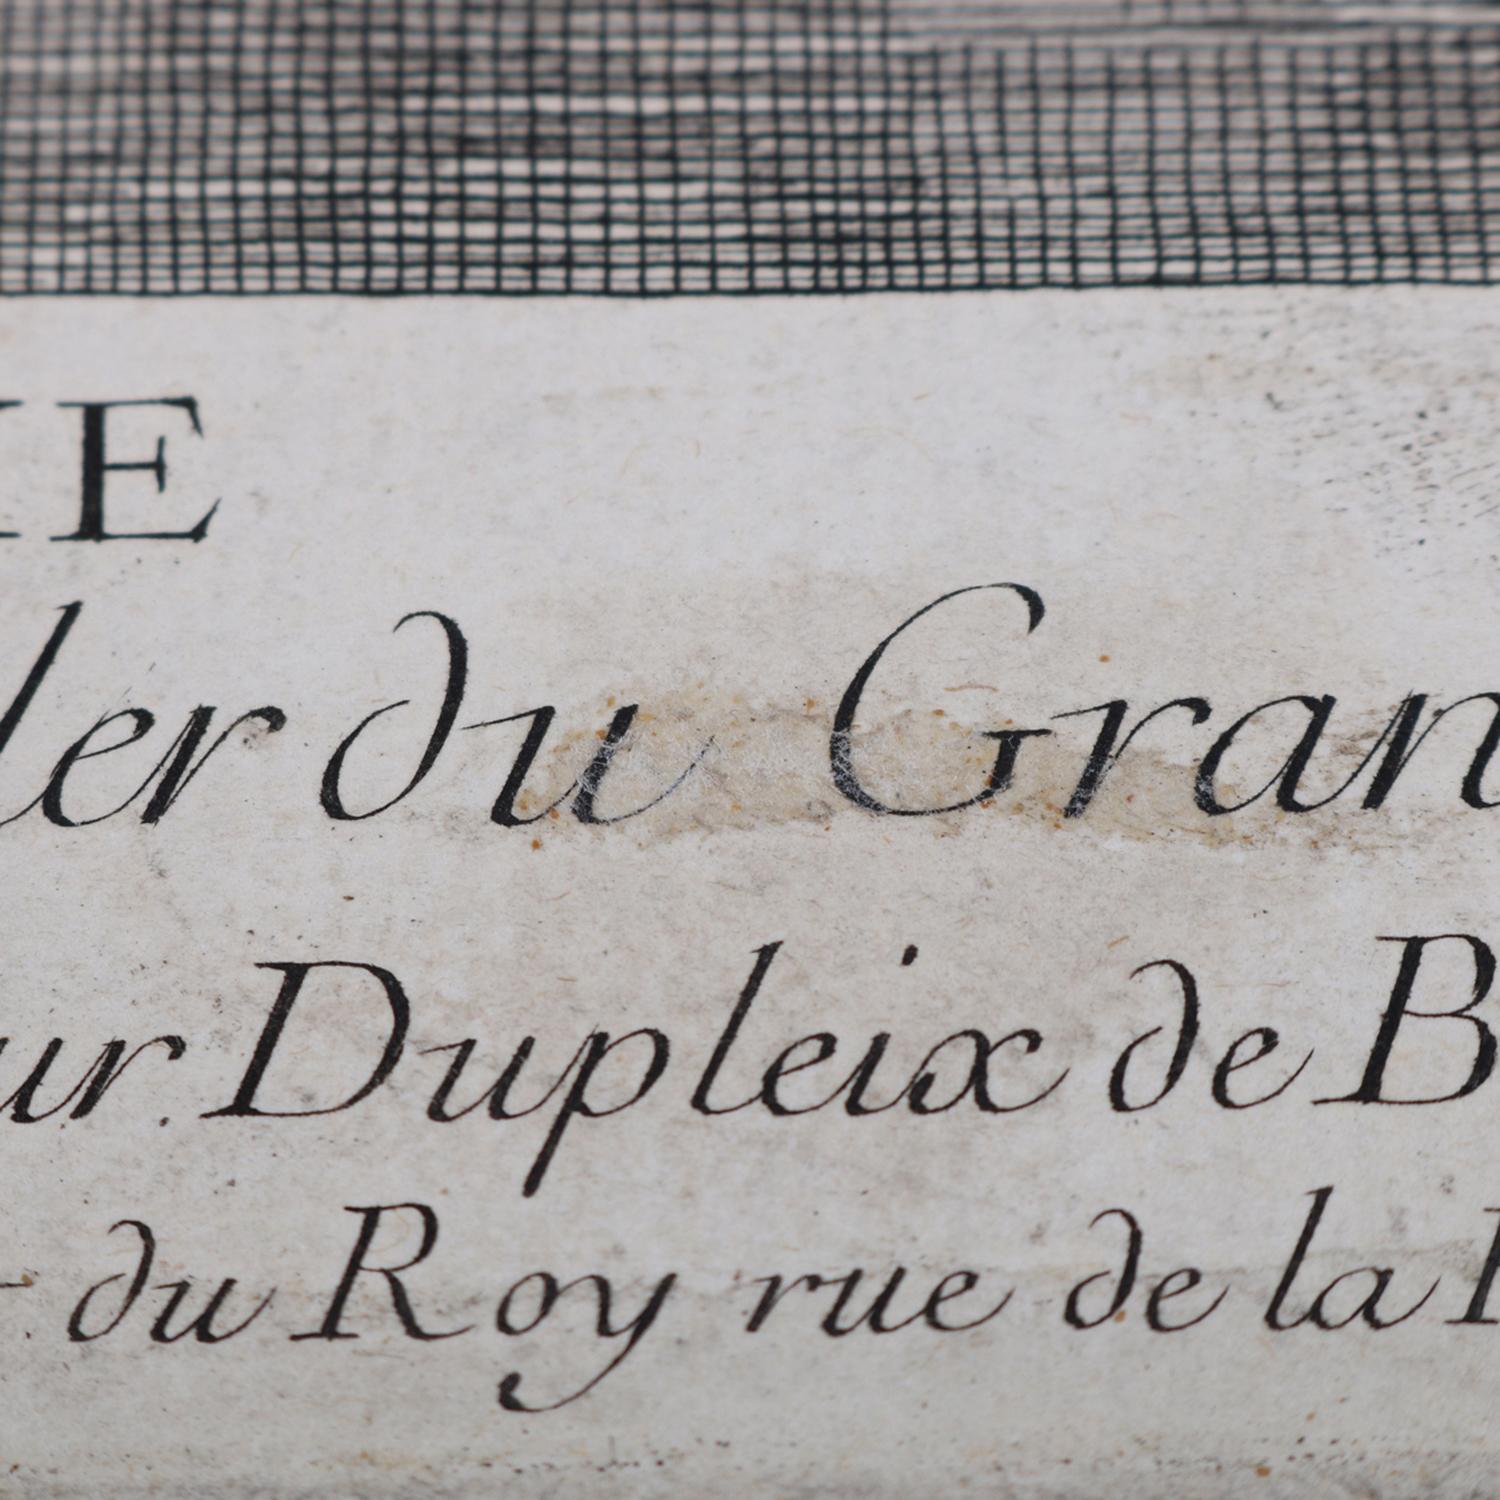 IE
ler du Gran
ur. Dupleix de B
du Roy rue de la